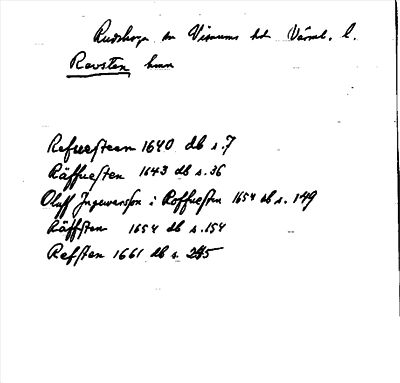 Rudskoga sn Visnums hd Värml. l.
Revsten hmn
Refuesteen 1640 db s. 7
Räffuesten 1643 db s. 36
Oluff Ingewarsson i Roffuesten 1654 db s. 149
Räffsten 1654 db s. 154
Refsten 1661 db s. 245